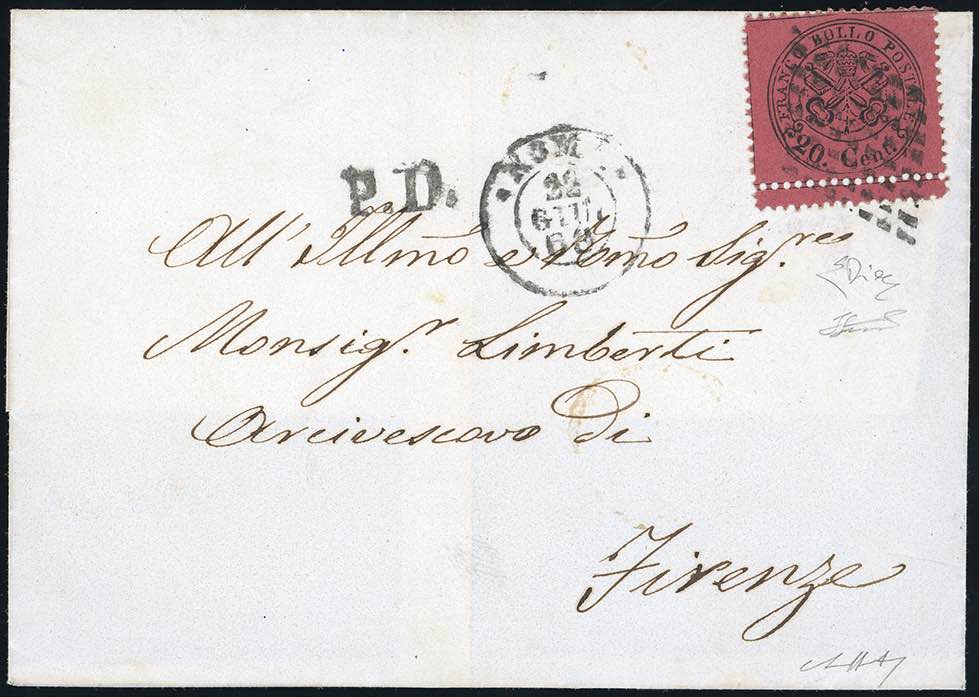 FRANCO BOLLO POSTALE
20. Cent.
P.D.
ROMA
22
GIU
68
All' Illmo e Rmo Sig.re
Monsig.r Limberti
Arcivescovo di
Firenze